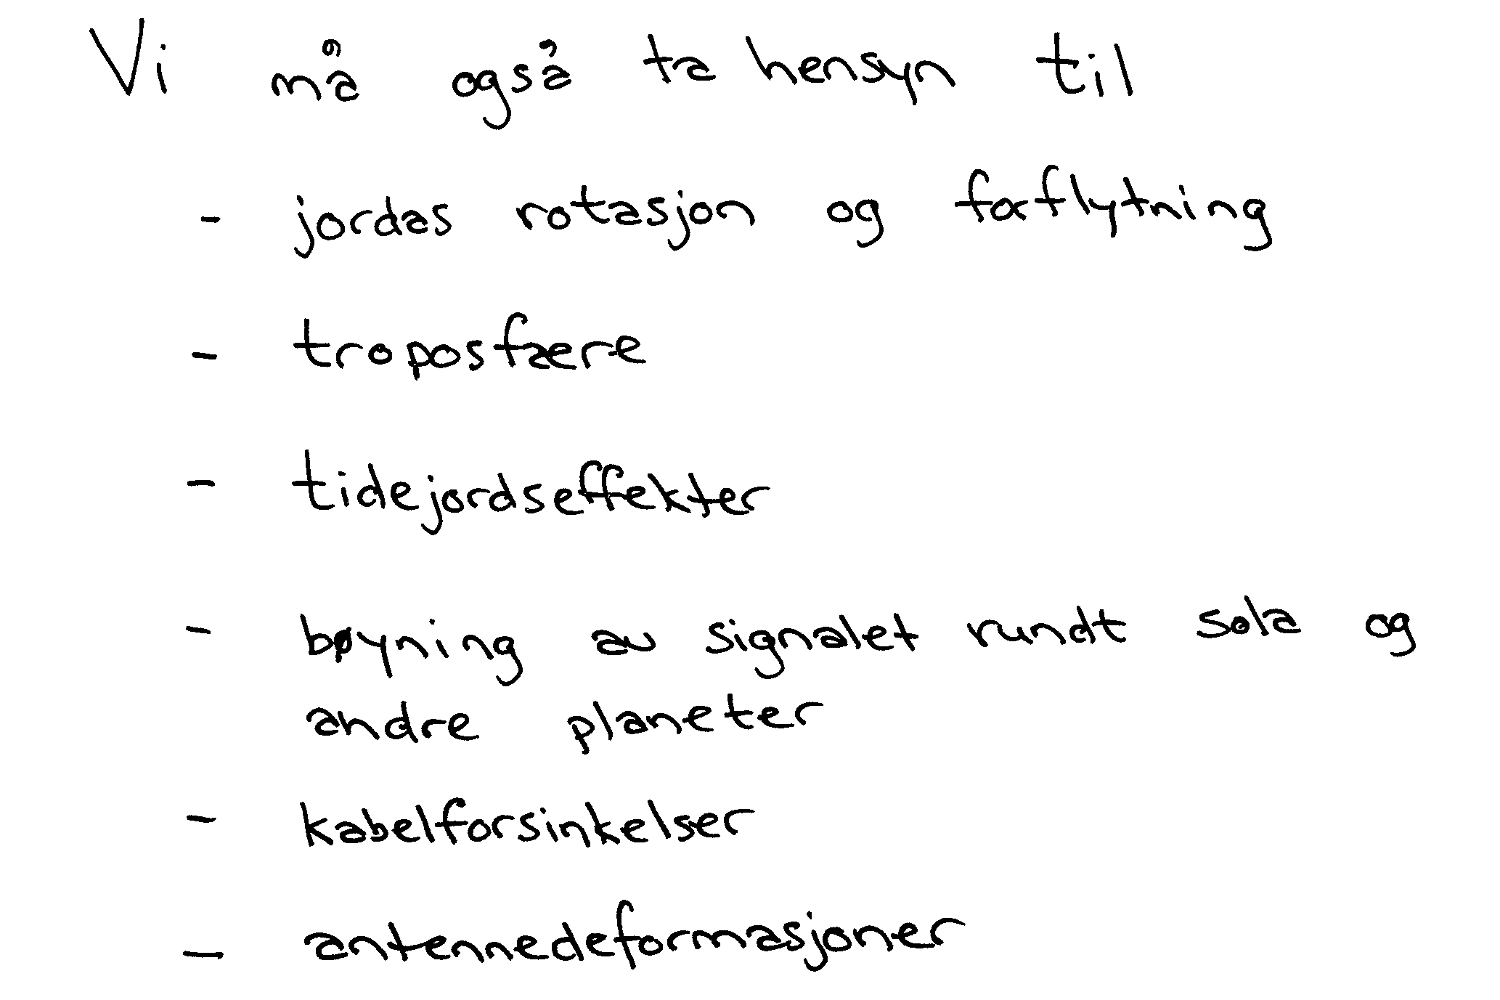 Vi må også ta hensyn til
- jordas rotasjon og forflytning
- troposfære
- tidejordseffekter
- bøyning av signalet rundt sola og
andre planeter
- kabelforsinkelser
- antennedeformasjoner